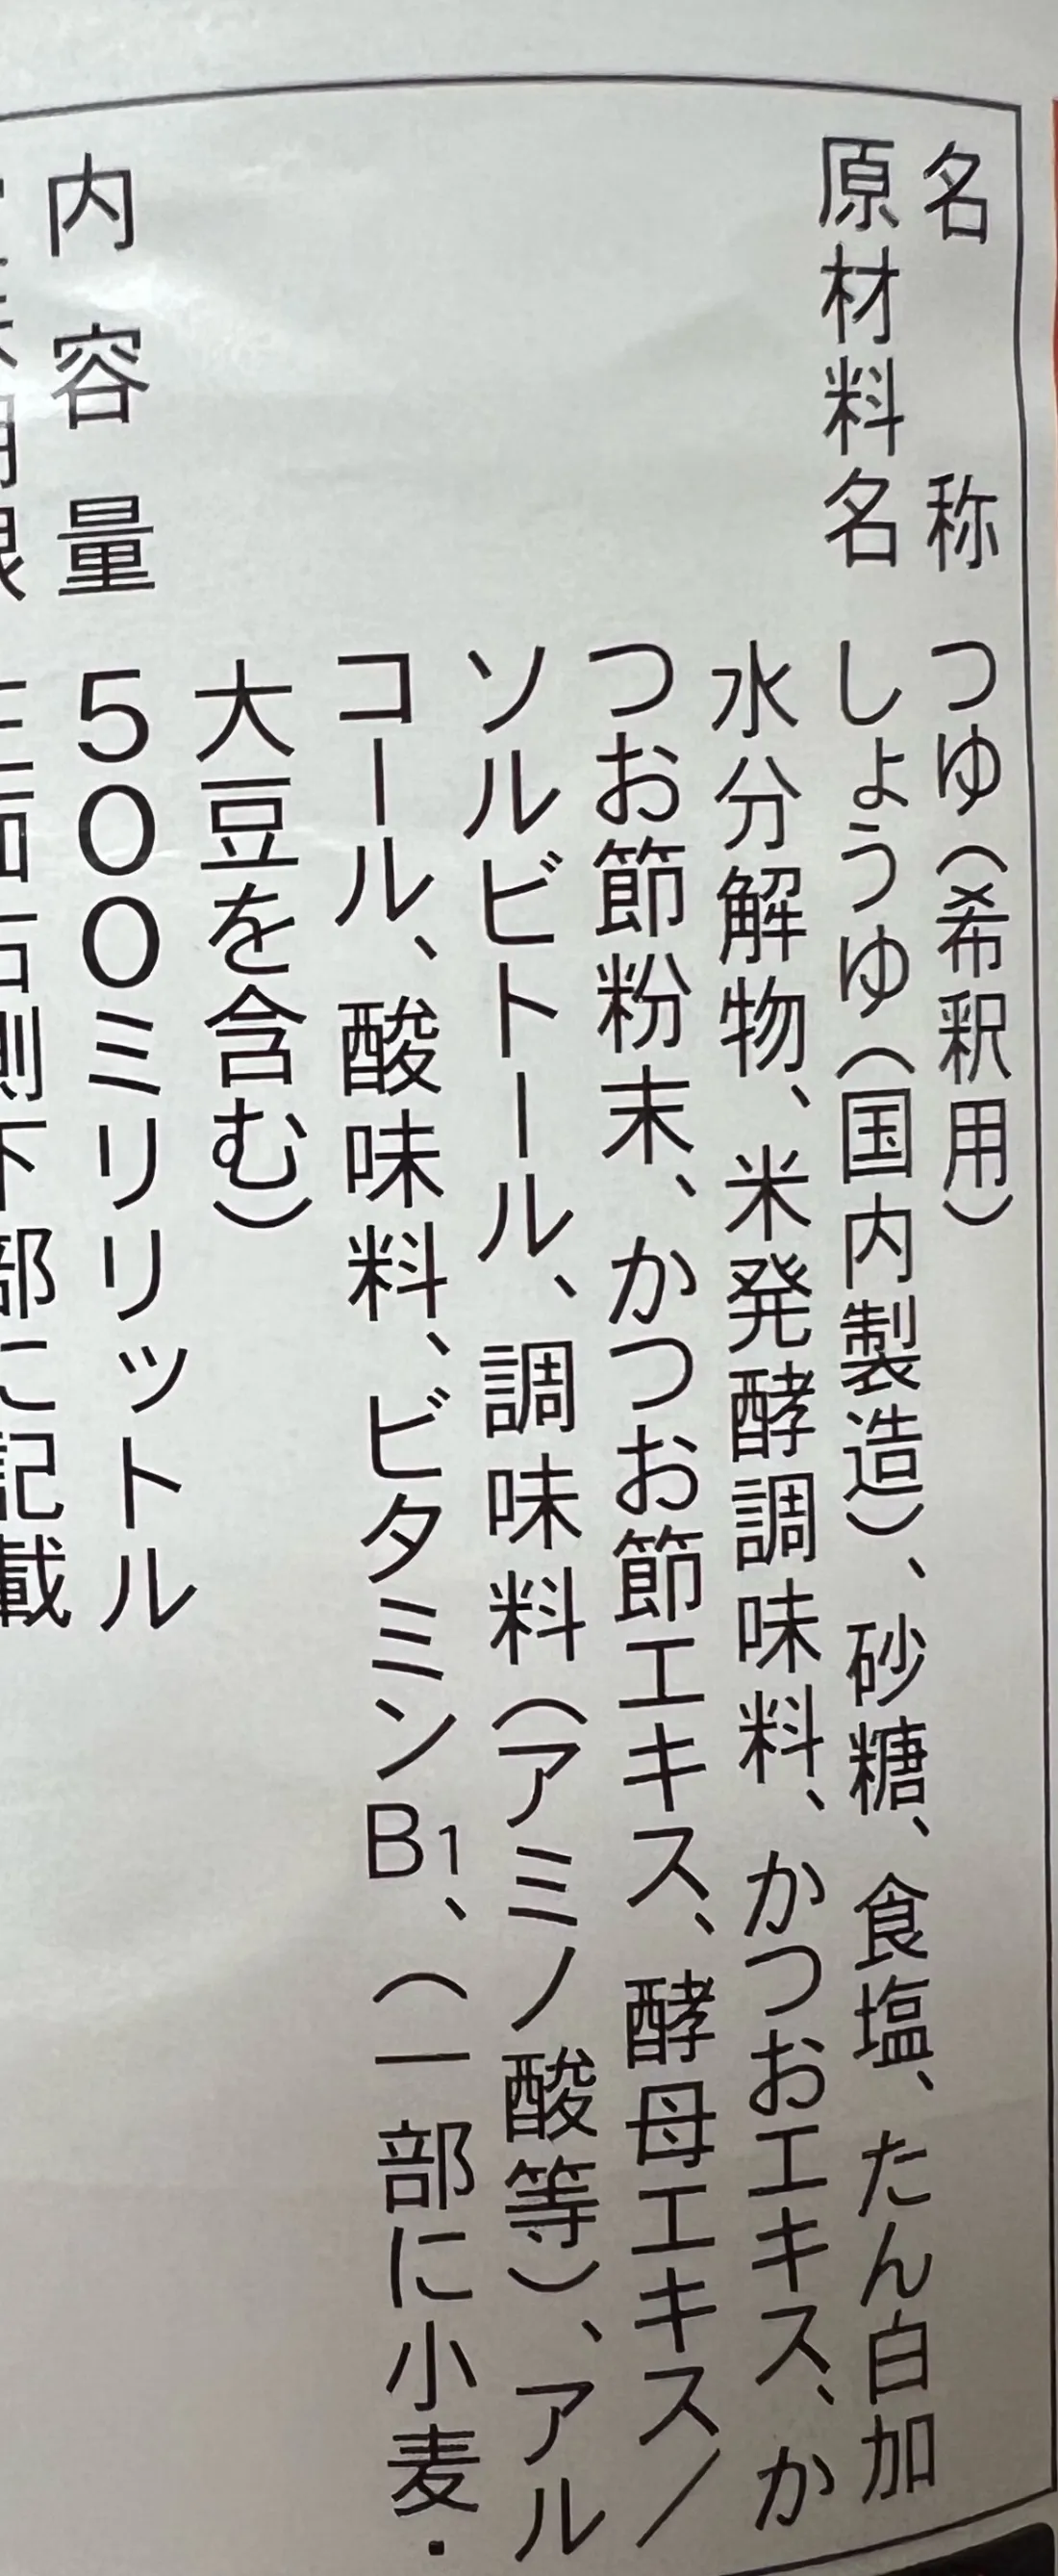 名称 つゆ（希釈用）
原材料名 しょうゆ（国内製造）、砂糖、食塩、たん白加
水分解物、米発酵調味料、かつおエキス、か
つお節粉末、かつお節エキス、酵母エキス／
ソルビトール、調味料（アミノ酸等）、アル
コール、酸味料、ビタミンB1、（一部に小麦・
大豆を含む）
内容量 500ミリリットル
側下部に記載